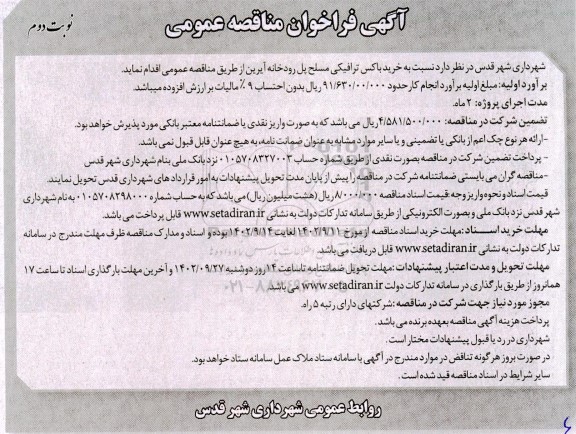 آگهی فراخوان مناقصه عمومی
نوبت دوم
شهرداری شهر قدس در نظر دارد نسبت به خرید باکس ترافیکی مسلح پل رودخانه آیرین از طریق مناقصه عمومی اقدام نماید.
برآورد اولیه: مبلغ اولیه برآورد انجام کار حدود ۹۱/۶۳۰/۰۰۰/۰۰۰ ریال بدون احتساب ۹ ٪ مالیات بر ارزش افزوده میباشد.
مدت اجرای پروژه: ۲ ماه.
تضمین شرکت در مناقصه: ۴/۵۸۱/۵۰۰/۰۰۰ ریال می باشد که به صورت واریز نقدی یا ضمانتنامه معتبر بانکی مورد پذیرش خواهد بود.
-ارائه هر نوع چک اعم از بانکی یا تضمینی و یا سایر موارد مشابه به عنوان ضمانت نامه، به هیچ عنوان قابل قبول نمی باشد.
- پرداخت تضمین شرکت در مناقصه بصورت نقدی از طریق شماره حساب ۰۱۰۵۷۰۸۳۲۷۰۰۳ نزد بانک ملی بنام شهرداری شهر قدس
-مناقصه گران می بایستی ضمانتنامه شرکت در مناقصه را پیش از پایان مدت تحویل پیشنهادات به امور قراردادهای شهرداری قدس تحویل نمایند.
قیمت اسناد و نحوه واریز وجه: قیمت اسناد مناقصه ۸/۰۰۰/۰۰۰ ریال (هشت میلیون ریال) می باشد که به حساب شماره ۰۱۰۵۷۰۸۲۹۸۰۰۰ به نام شهرداری
شهر قدس نزد بانک ملی و بصورت الکترونیکی از طریق سامانه تدارکات دولت به نشانی www.setadiran.ir قابل پرداخت می باشد.
مهلت خرید اسناد: مهلت خرید اسناد مناقصه از مورخ ۱۴۰۲/۹/۱۱ لغایت ۱۴۰۲/۹/۱۴ بوده و اسناد و مدارک مناقصه ظرف مهلت مندرج در سامانه
تدارکات دولت به نشانی www.setadiran.ir قابل دریافت می باشد.
مهلت تحویل و مدت اعتبار پیشنهادات: مهلت تحویل ضمانتنامه تا ساعت ۱۴ روز دوشنبه ۱۴۰۲/۰۹/۲۷ و آخرین مهلت بارگذاری اسناد تا ساعت ۱۷
همانروز از طریق بارگذاری در سامانه تدارکات دولت www.setadiran.ir می باشد.
مجوز مورد نیاز جهت شرکت در مناقصه: شرکتهای دارای رتبه ۵ راه.
پرداخت هزینه آگهی مناقصه بعهده برنده می باشد.
شهرداری در رد یا قبول پیشنهادات مختار است.
در صورت بروز هرگونه تناقض در موارد مندرج در آگهی با سامانه ستاد ملاک عمل سامانه ستاد خواهد بود.
سایر شرایط در اسناد مناقصه قید شده است.
روابط عمومی شهرداری شهر قدس